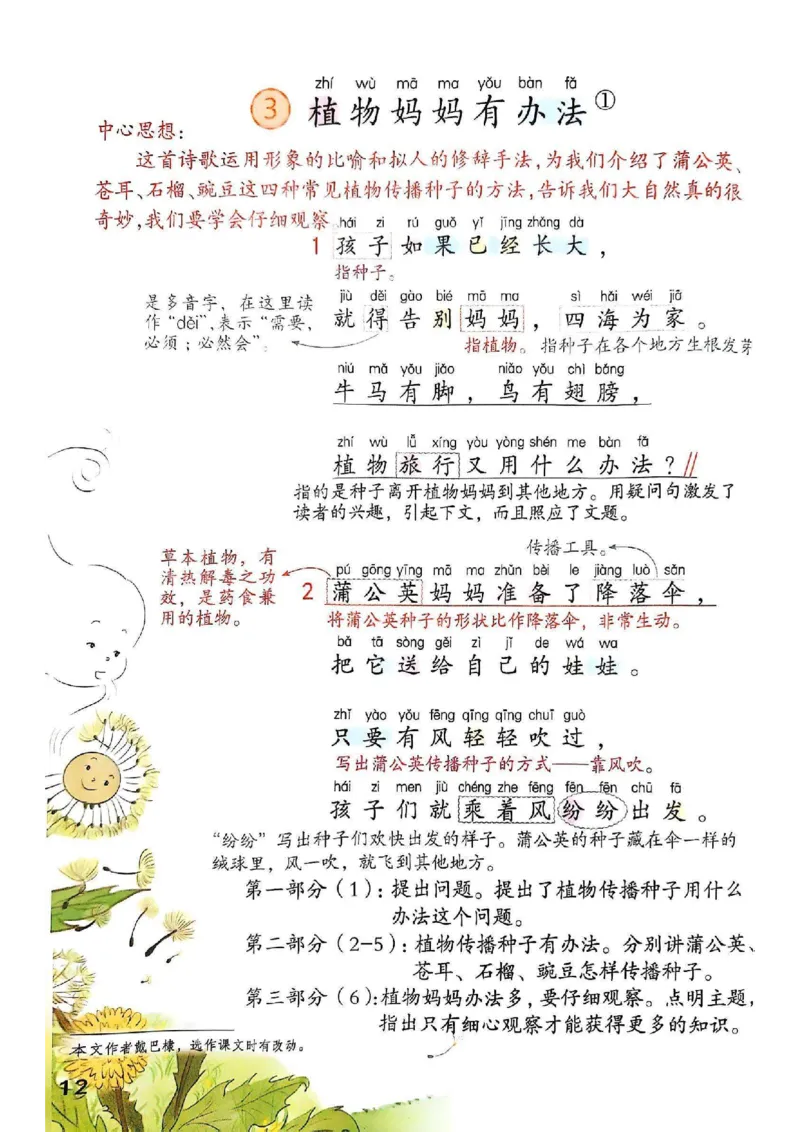 zhí wù mā ma yǒu bàn fǎ
③ 植物妈妈有办法①
中心思想：
这首诗歌运用形象的比喻和拟人的修辞手法，为我们介绍了蒲公英、
苍耳、石榴、豌豆这四种常见植物传播种子的方法，告诉我们大自然真的很
奇妙，我们要学会仔细观察。
hái zi rú guǒ yǐ jīng zhǎng dà
1 孩子如果已经长大，
指种子。
是多音字，在这里读
作“děi”，表示“需要，
必须；必然会”。
jiù děi gào bié mā ma sì hǎi wéi jiā
就得告别妈妈，四海为家。
指植物。 指种子在各个地方生根发芽
niú mǎ yǒu jiǎo niǎo yǒu chì bǎng
牛马有脚，鸟有翅膀，
zhí wù lǚ xíng yòu yòng shén me bàn fǎ
植物旅行又用什么办法？//
指的是种子离开植物妈妈到其他地方。用疑问句激发了
读者的兴趣，引起下文，而且照应了文题。
传播工具。
草本植物，有
清热解毒之功
效，是药食兼
用的植物。
pú gōng yīng mā ma zhǔn bèi le jiàng luò sǎn
2 蒲公英妈妈准备了降落伞，
将蒲公英种子的形状比作降落伞，非常生动。
bǎ tā sòng gěi zì jǐ de wá wa
把它送给自己的娃娃。
zhǐ yào yǒu fēng qīng qīng chuī guò
只要有风轻轻吹过，
写出蒲公英传播种子的方式——靠风吹。
hái zi men jiù chéng zhe fēng fēn fēn chū fā
孩子们就乘着风纷纷出发。
“纷纷”写出种子们欢快出发的样子。蒲公英的种子藏在伞一样的
绒球里，风一吹，就飞到其他地方。
第一部分（1）：提出问题。提出了植物传播种子用什么
办法这个问题。
第二部分（2-5）：植物传播种子有办法。分别讲蒲公英、
苍耳、石榴、豌豆怎样传播种子。
第三部分（6）：植物妈妈办法多，要仔细观察。点明主题，
指出只有细心观察才能获得更多的知识。
本文作者戴巴棣，选作课文时有改动。
12